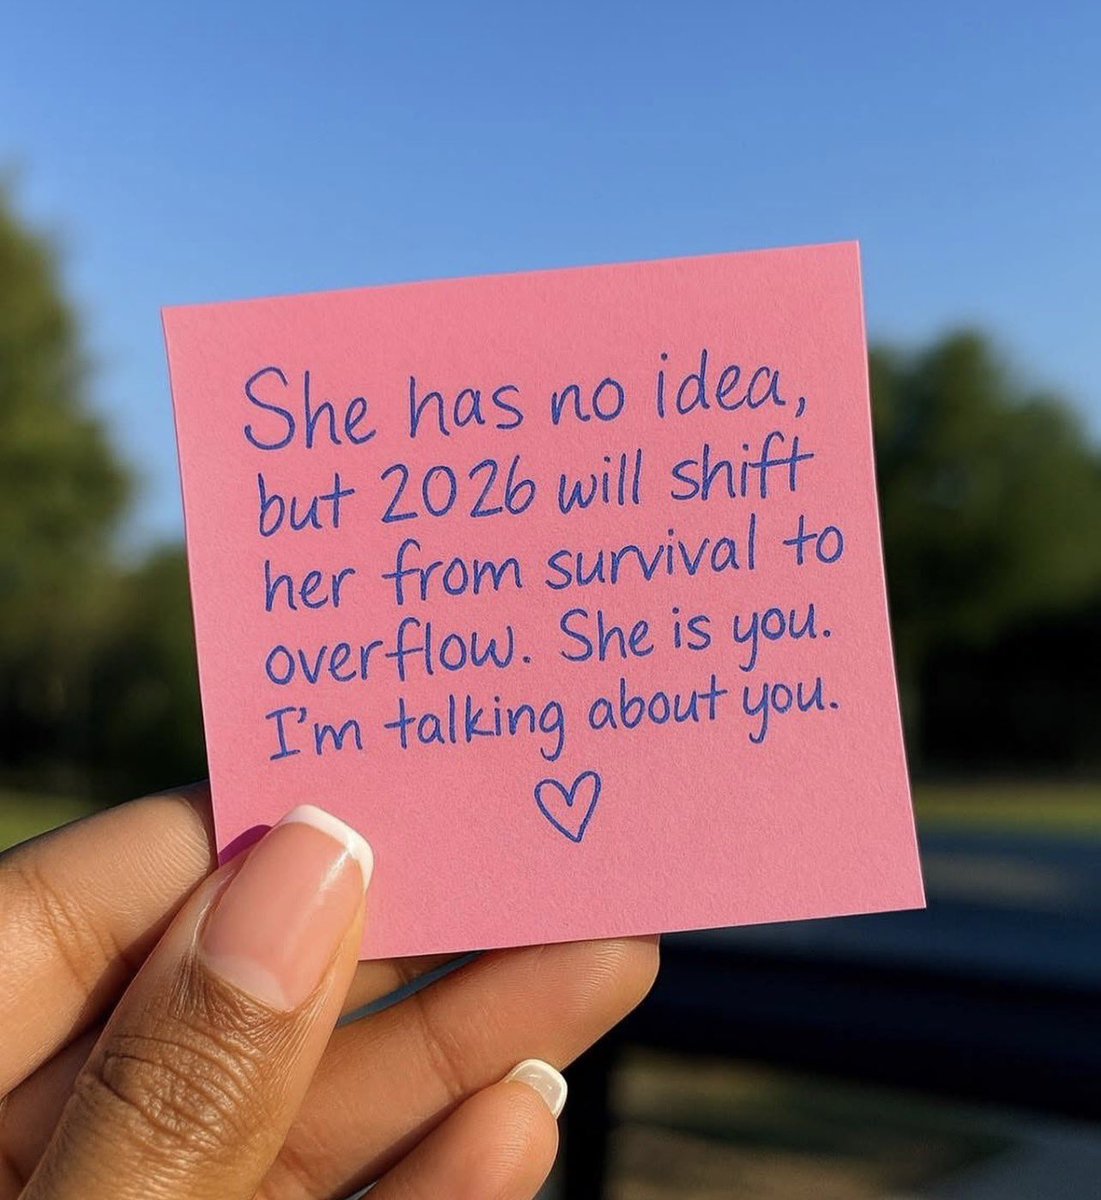 She has no idea,
but 2026 will shift
her from survival to
overflow. She is you.
I'm talking about you.